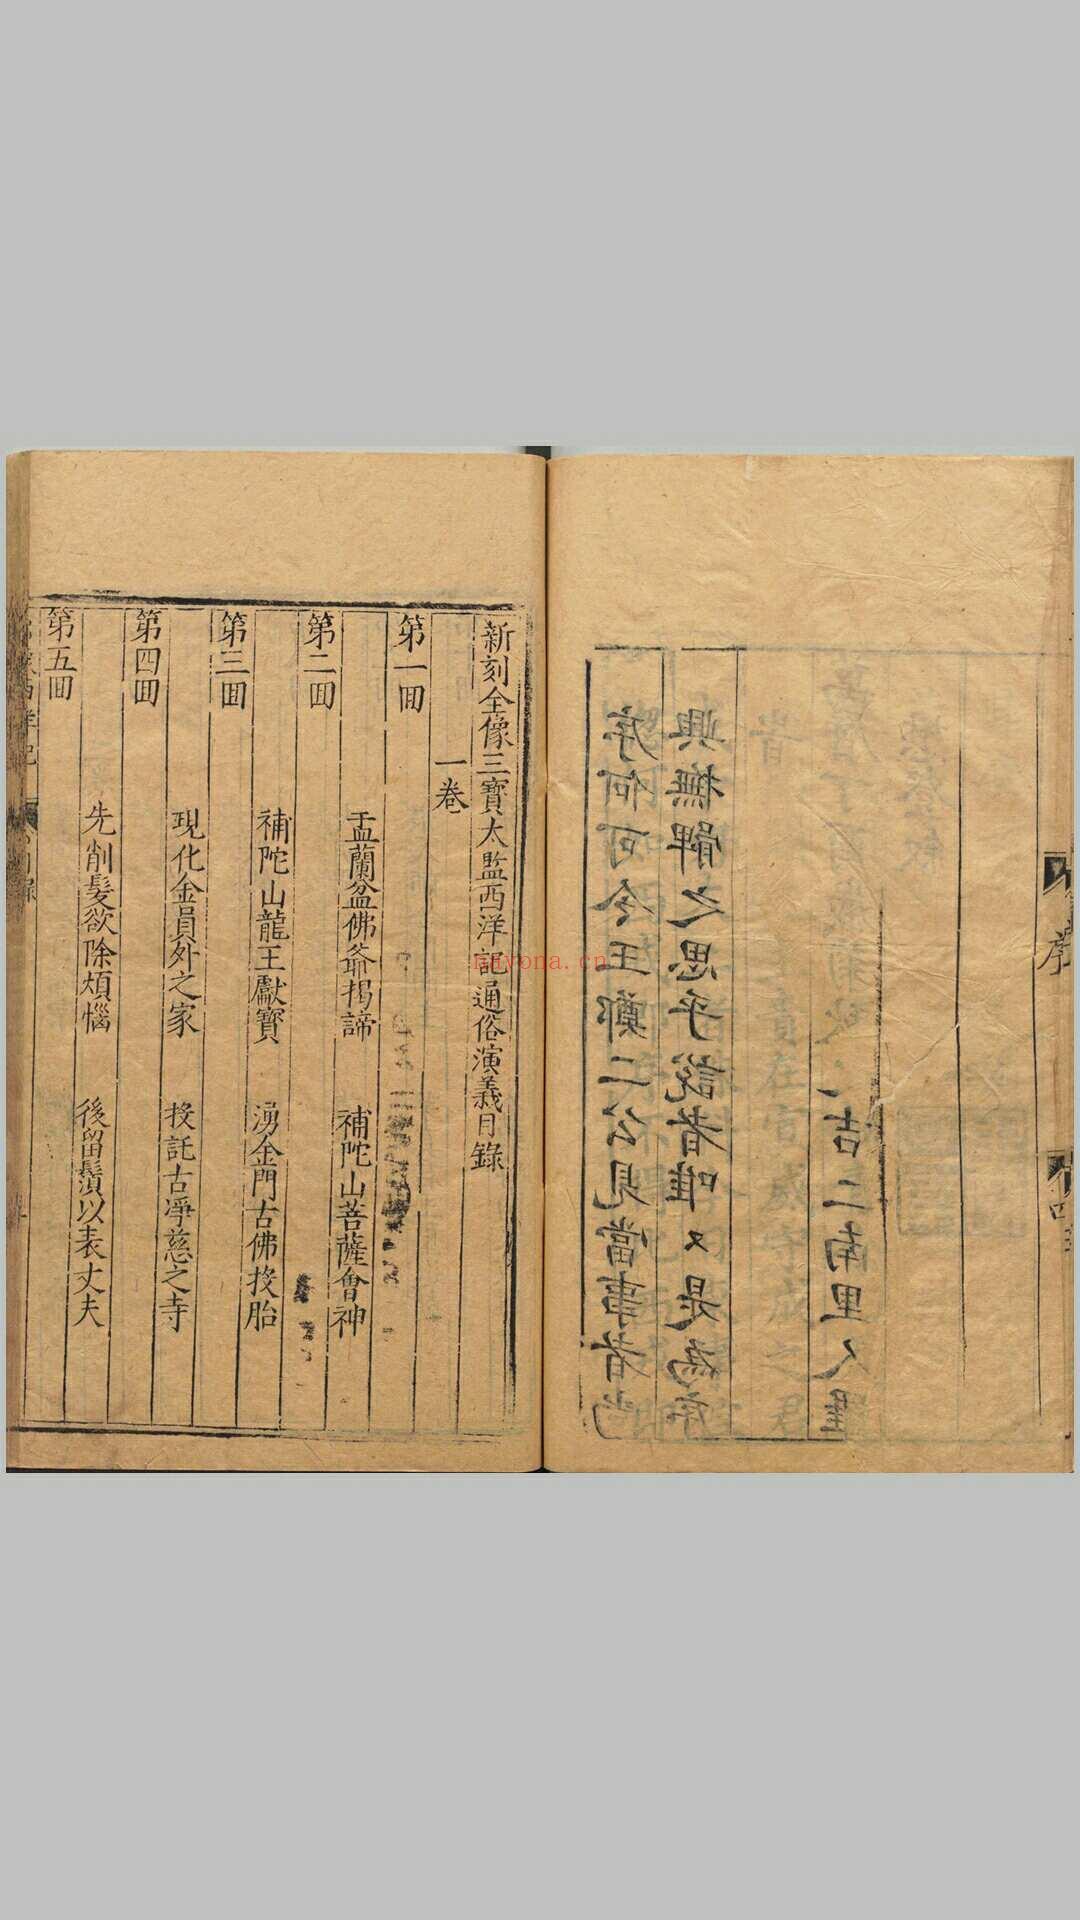 序何可令王鄭二公見當事者尚
興撫髀之思乎說者唯〻是為序
吉二南里人羅
序
新刻全像三寶太監西洋記通俗演義目錄
一卷
第一回
盂蘭盆佛爺揭諦　補陀山菩薩會神
第二回
補陀山龍王獻寶　湧金門古佛投胎
第三回
現化金員外之家　投託古淨慈之寺
第四回
先削髮欲除煩惱　後留鬚以表丈夫
第五回
nayona.cn